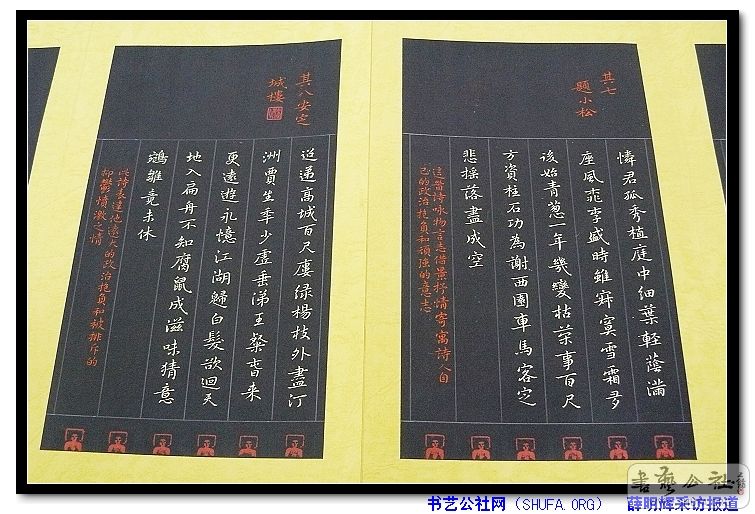 其七
题小松
憐君孤秀植庭中细葉輕蔭滿
座風桃李盛時雖寂寞雪霜多
後始青葱一年幾變枯荣事百尺
方資柱石功為謝西園車馬客定
悲搖落盡成空
這首诗咏物言志借景抒情寄寓詩人自
己的政治抱负和顽强的意志
其八安定
城樓
迢遞高城百尺樓绿楊枝外盡汀
洲賈生年少虚垂涕王粲春来
更遠遊永憶江湖歸白髮欲迴天
地入扁舟不知腐鼠成滋味猜意
鵷雛竟未休
此诗表達他遠大的政治抱负和被排斥的
抑鬱憤激之情
書藝公社
书艺公社网（SHUFA.ORG） 薛明辉采访报道